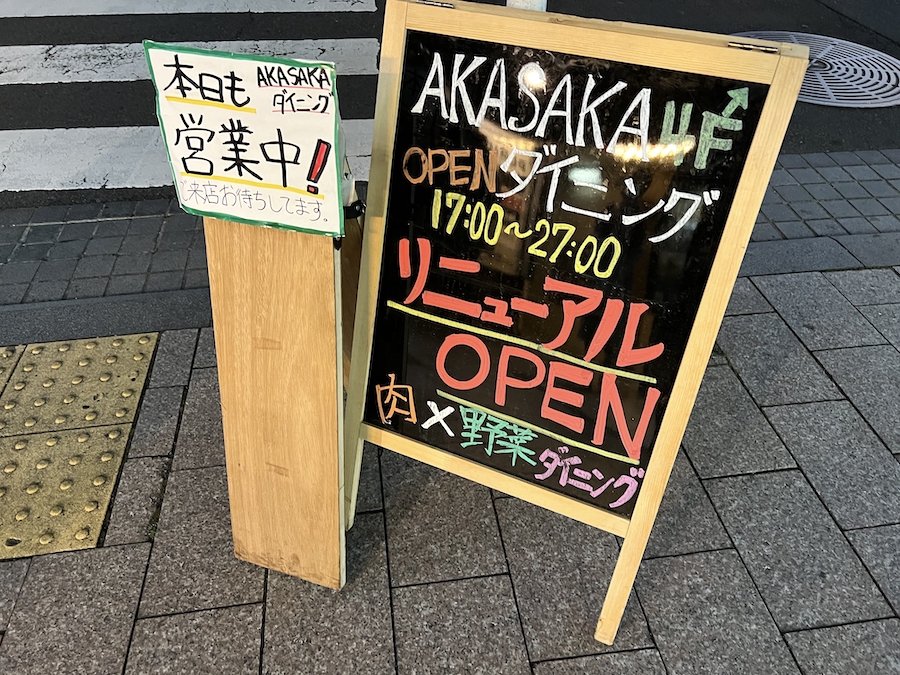 本日も AKASAKA
ダイニング
営業中!
ご来店お待ちしてます。
AKASAKA 4F
OPEN ダイニング
17:00～27:00
リニューアル
OPEN
肉×野菜 ダイニング